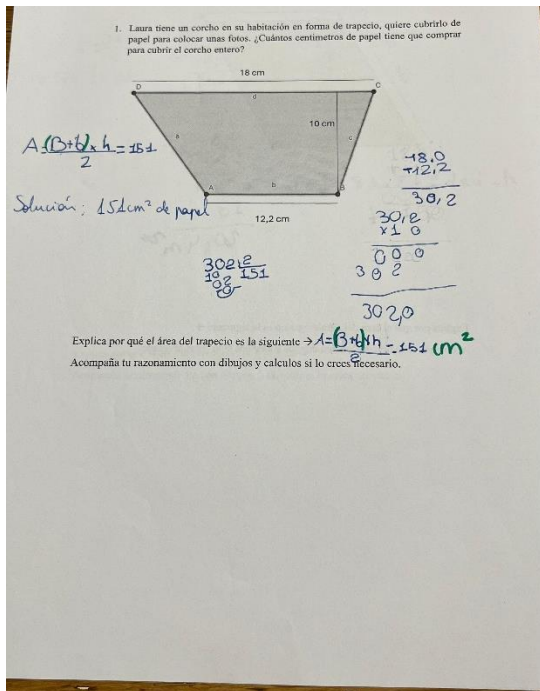 1. Laura tiene un corcho en su habitación en forma de trapecio, quiere cubrirlo de
papel para colocar unas fotos. ¿Cuántos centímetros de papel tiene que comprar
para cubrir el corcho entero?
18 cm
D
C
d
10 cm
a
c
A
b
B
12,2 cm
A=(B+b)×h/2=151
Solución: 151cm² de papel
18,0
+12,2
30,2
30,2
×10
000
302
302,0
302 2
10 151
02
0
Explica por qué el área del trapecio es la siguiente → A=(B+b)×h/2=151 cm²
Acompaña tu razonamiento con dibujos y calculos si lo crees necesario.